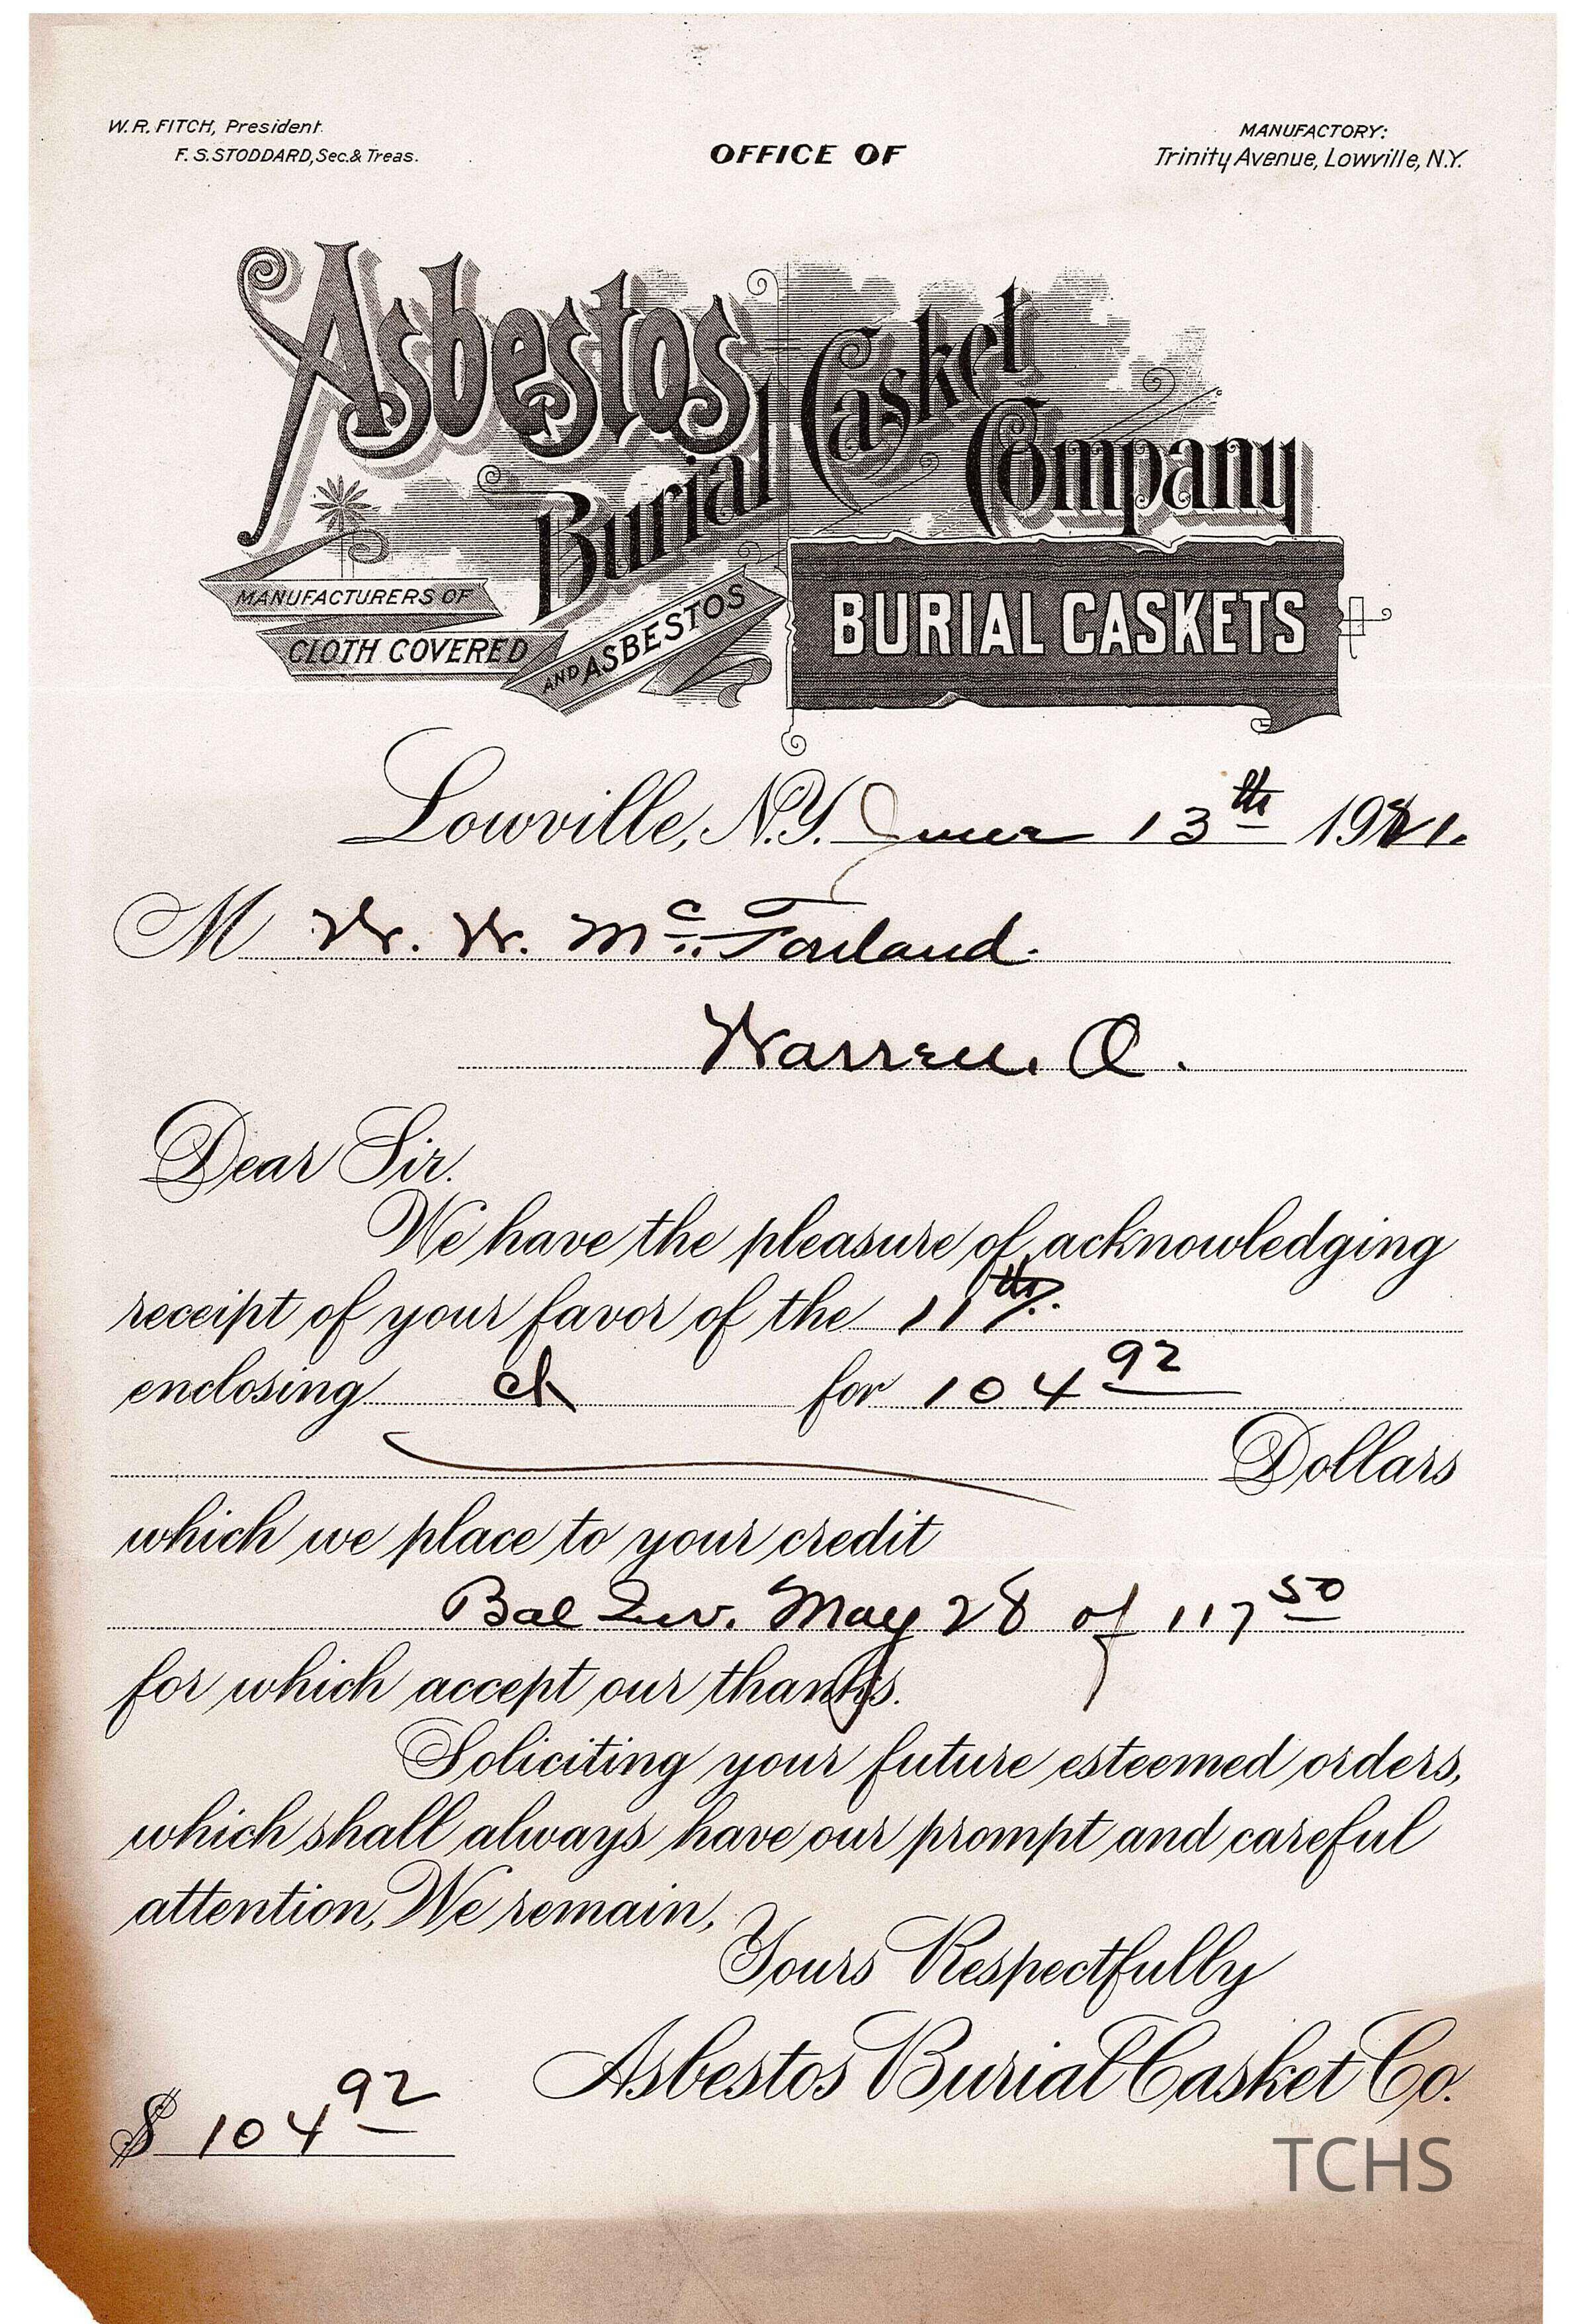 W. R. FITCH, President.
F. S. STODDARD, Sec. & Treas.
OFFICE OF
MANUFACTORY:
Trinity Avenue, Lowville, N.Y.
Asbestos
Burial Casket
Company
MANUFACTURERS OF
CLOTH COVERED
AND ASBESTOS
BURIAL CASKETS
Lowville, N.Y. June 13th 19
M W. W. Mc Farland.
Warren. O.
Dear Sir.
We have the pleasure of acknowledging
receipt of your favor of the 11th.
enclosing ck for 104 92
Dollars
which we place to your credit
Bal Inv. May 28 of 117 50
for which accept our thanks.
Soliciting your future esteemed orders,
which shall always have our prompt and careful
attention, We remain,
Yours Respectfully
Asbestos Burial Casket Co.
$ 104 92
TCHS